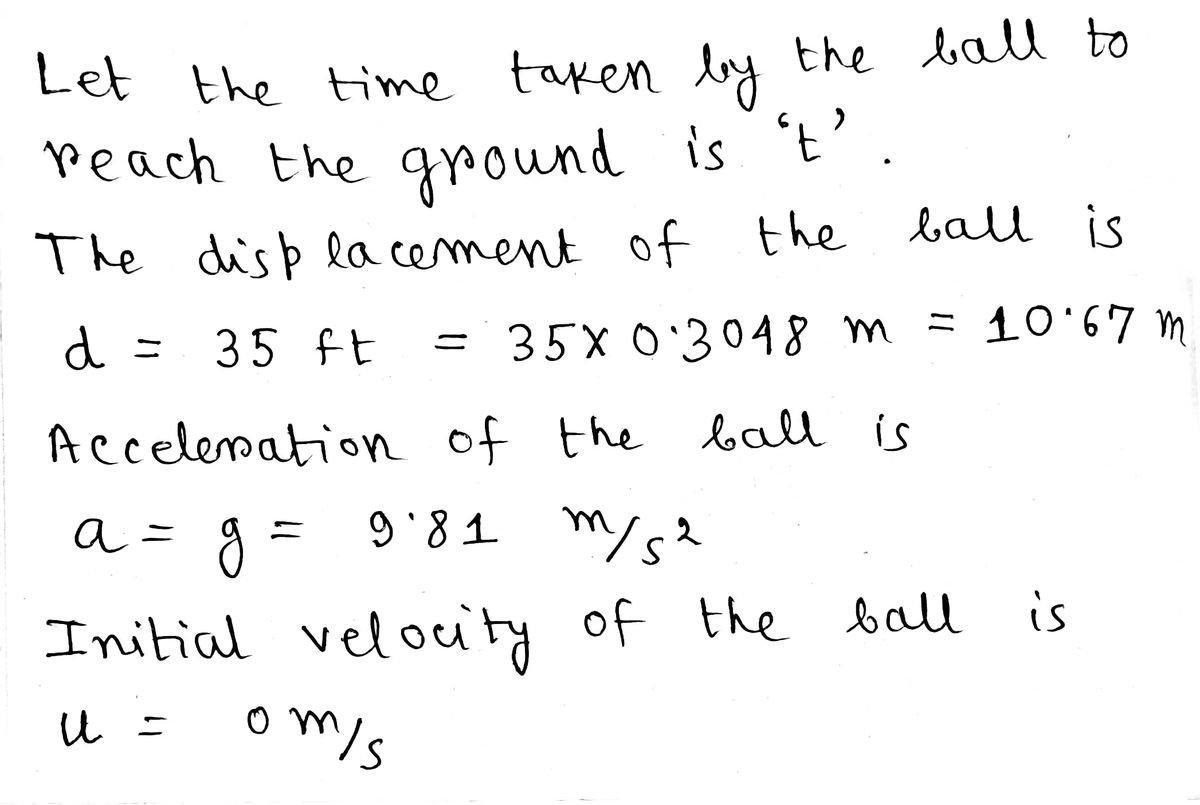 Let the time taken by the ball to
reach the ground is 't'.
The displacement of the ball is
d = 35 ft = 35 x 0.3048 m = 10.67 m
Acceleration of the ball is
a = g = 9.81 m/s²
Initial velocity of the ball is
u = 0 m/s